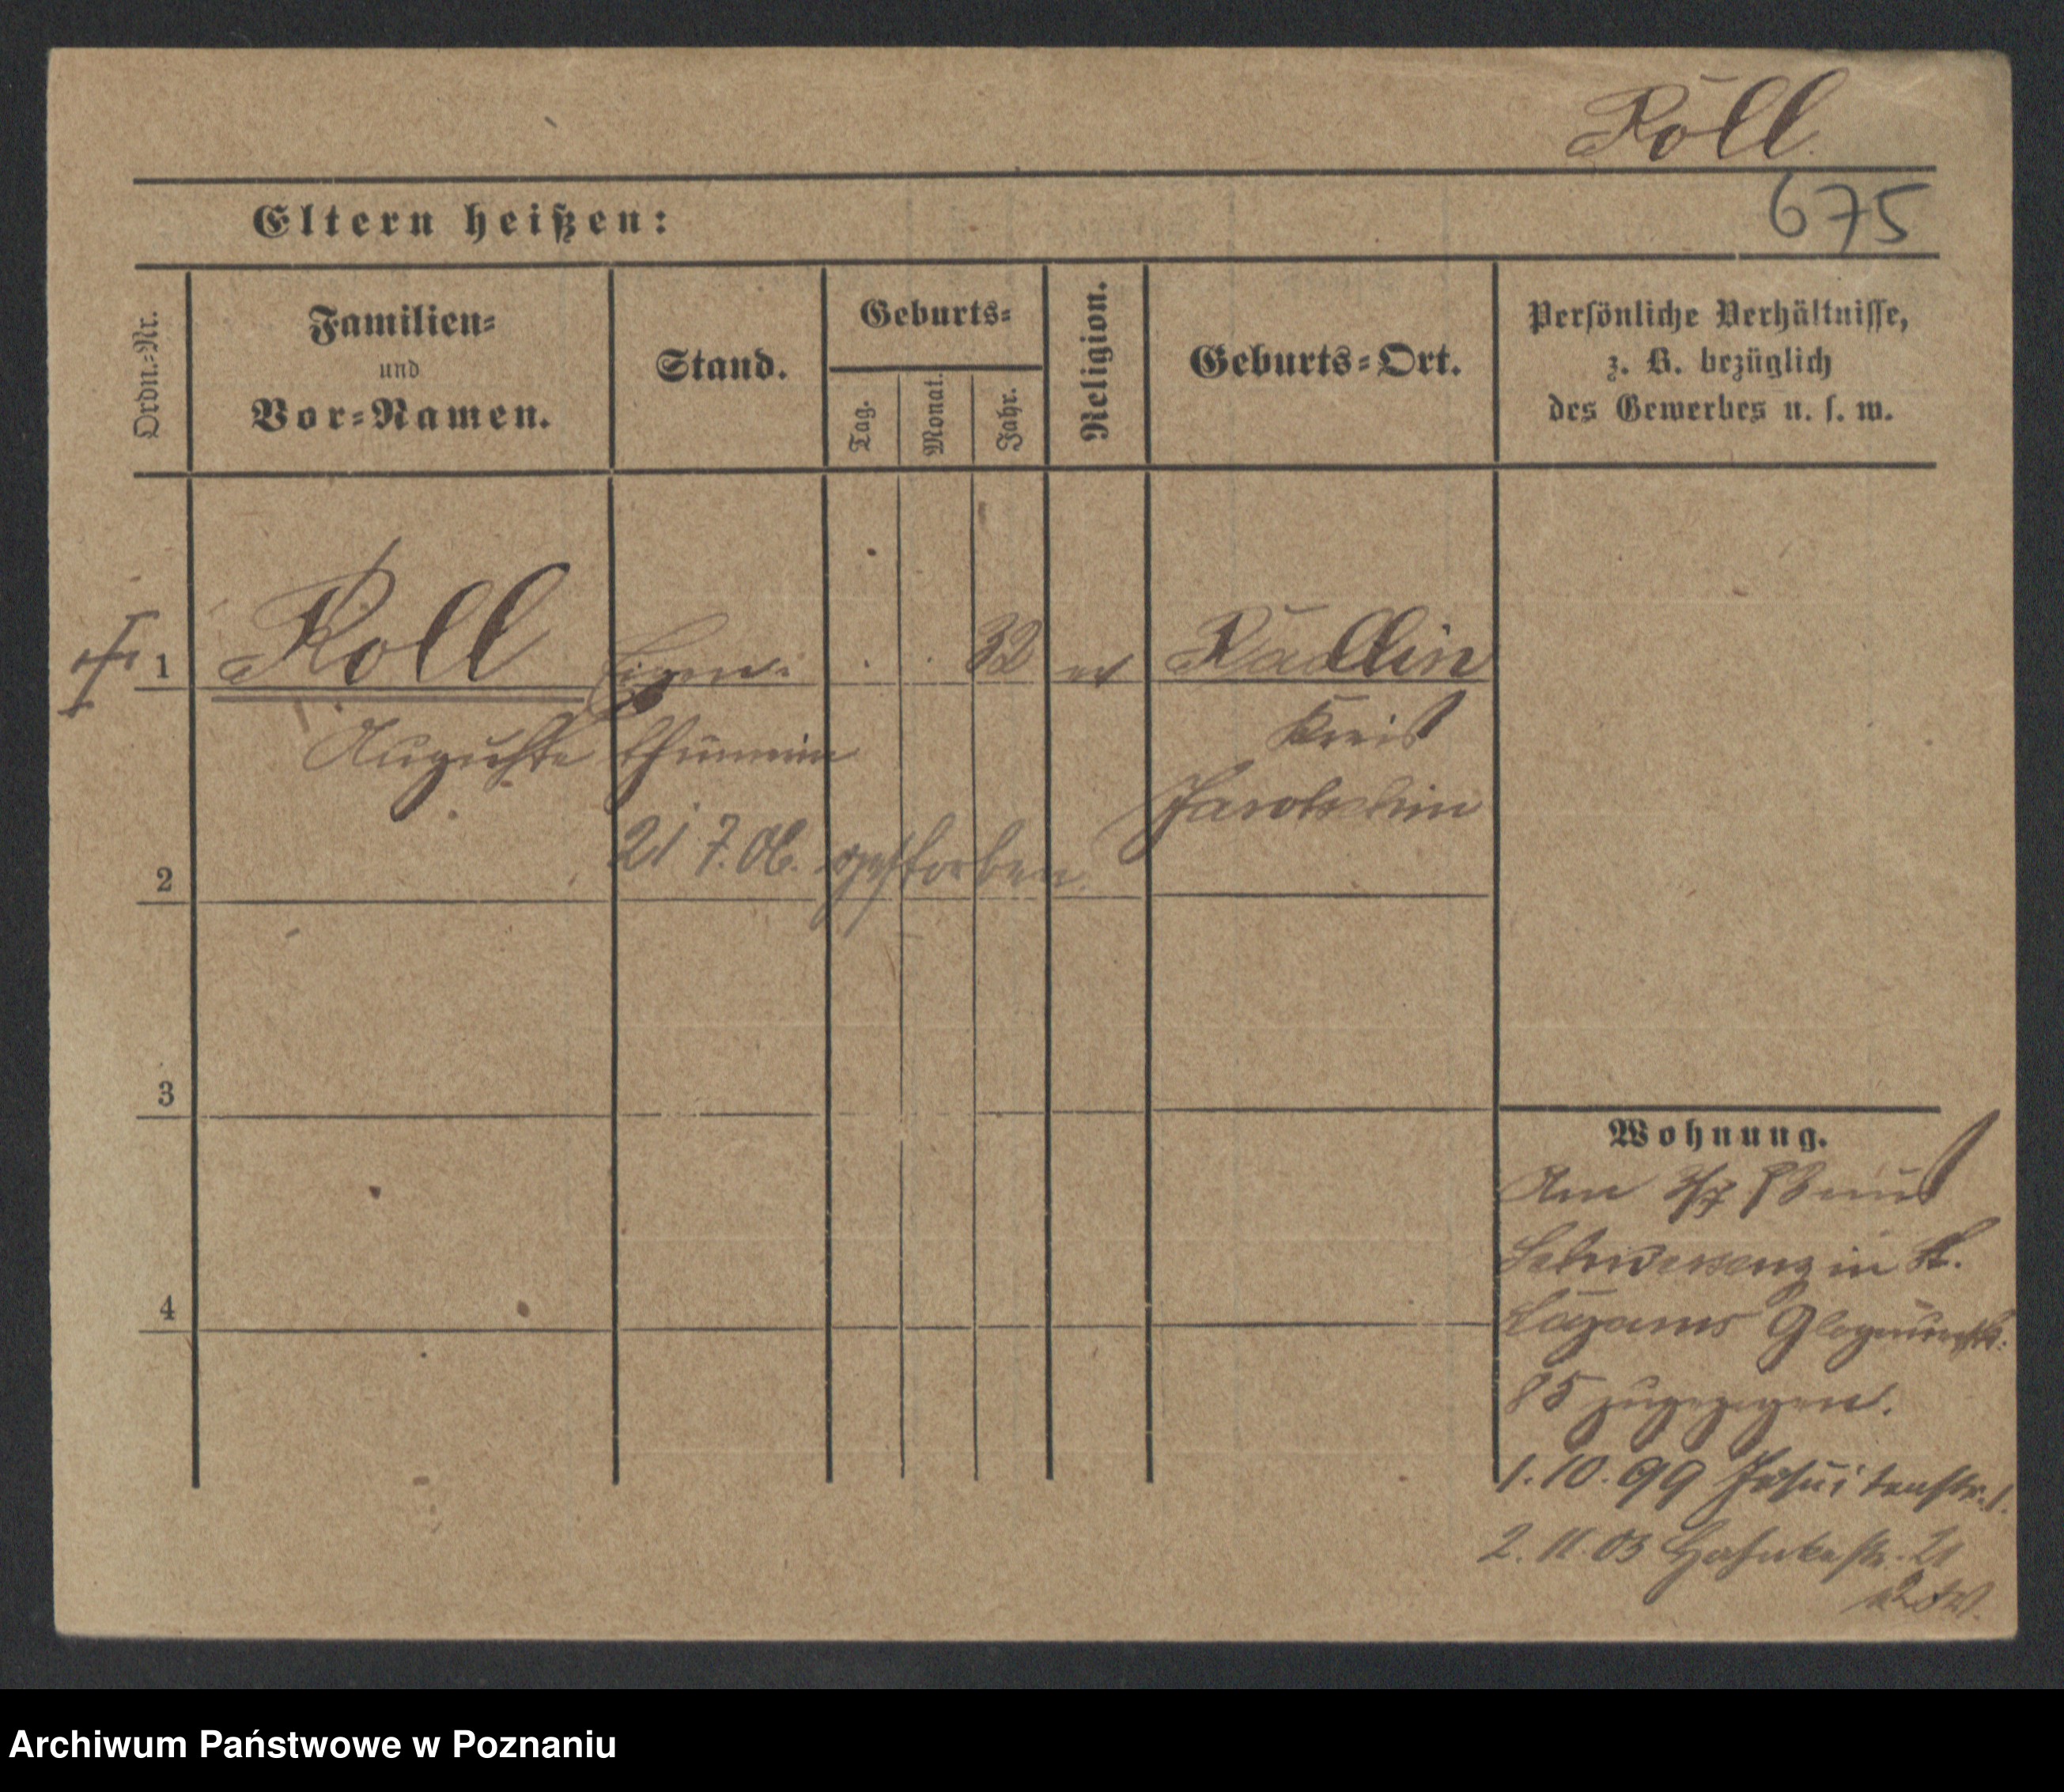 Roll
675
Eltern heißen:
Ordn.-Nr.
Familien-
und
Vor-Namen.
Stand.
Geburts-
Tag.
Monat.
Jahr.
Religion.
Geburts-Ort.
Persönliche Verhältnisse,
z. B. bezüglich
des Gewerbes u. s. w.
1
Roll
Eigen-
32
ev
Radlin
Auguste
thümerin
Kreis
Jarotschin
21 7. 06. gestorben.
2
3
4
Wohnung.
Am
aus
Schwersenz in St.
Lazarus Glogauerstr.
85 zugezogen.
1. 10. 99 Jesuitenstr. 1.
2. 11. 03 Hohnkestr. 21
Archiwum Państwowe w Poznaniu